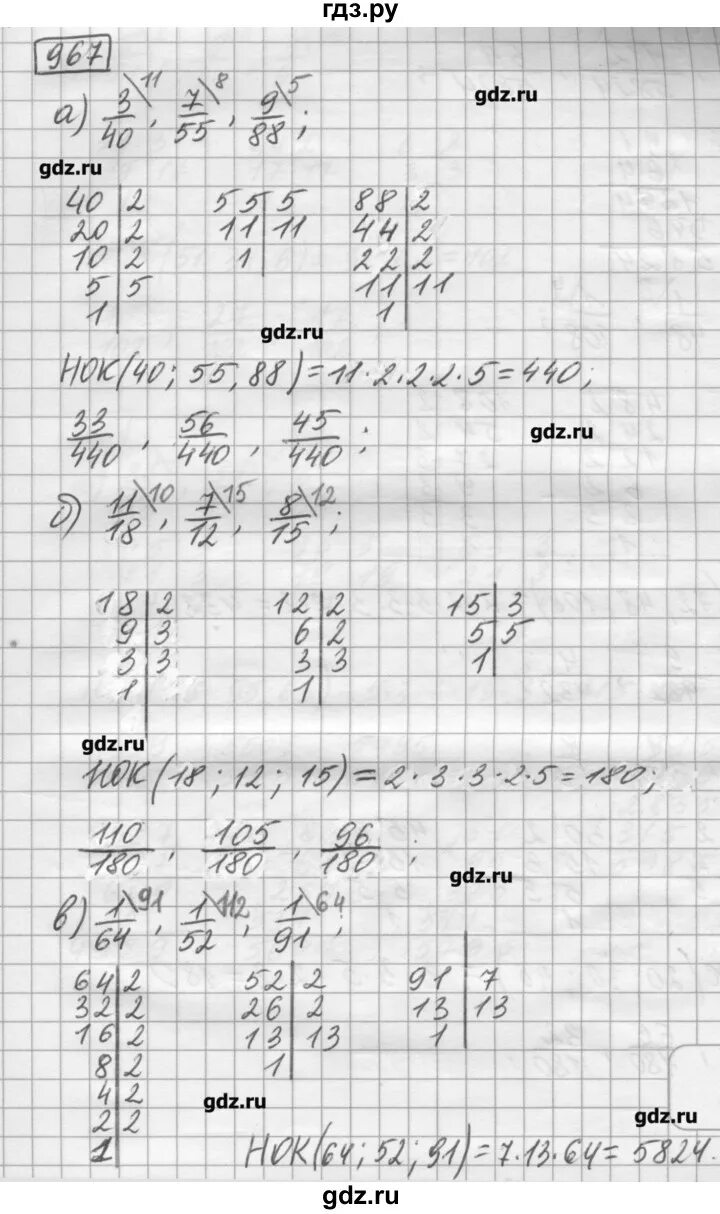 гдз.ру
967
а) 3/40 \11, 7/55 \8, 9/88 \5;
gdz.ru
gdz.ru
40 | 2   55 | 5   88 | 2
20 | 2   11 | 11   44 | 2
10 | 2   1 |   22 | 2
5 | 5   11 | 11
1 |   1 |
gdz.ru
НОК(40; 55, 88) = 11·2·2·2·5 = 440;
33/440, 56/440, 45/440;
gdz.ru
б) 11/18 \10, 7/12 \15, 8/15 \12;
18 | 2   12 | 2   15 | 3
9 | 3   6 | 2   5 | 5
3 | 3   3 | 3   1 |
1 |   1 |
gdz.ru
НОК(18; 12; 15) = 2·3·3·2·5 = 180;
110/180, 105/180, 96/180;
gdz.ru
в) 1/64 \91, 1/52 \112, 1/91 \64;
64 | 2   52 | 2   91 | 7
32 | 2   26 | 2   13 | 13
16 | 2   13 | 13   1 |
8 | 2   1 |
4 | 2
2 | 2
1 |
gdz.ru
gdz.ru
НОК(64; 52; 91) = 7·13·64 = 5824.
gdz.ru